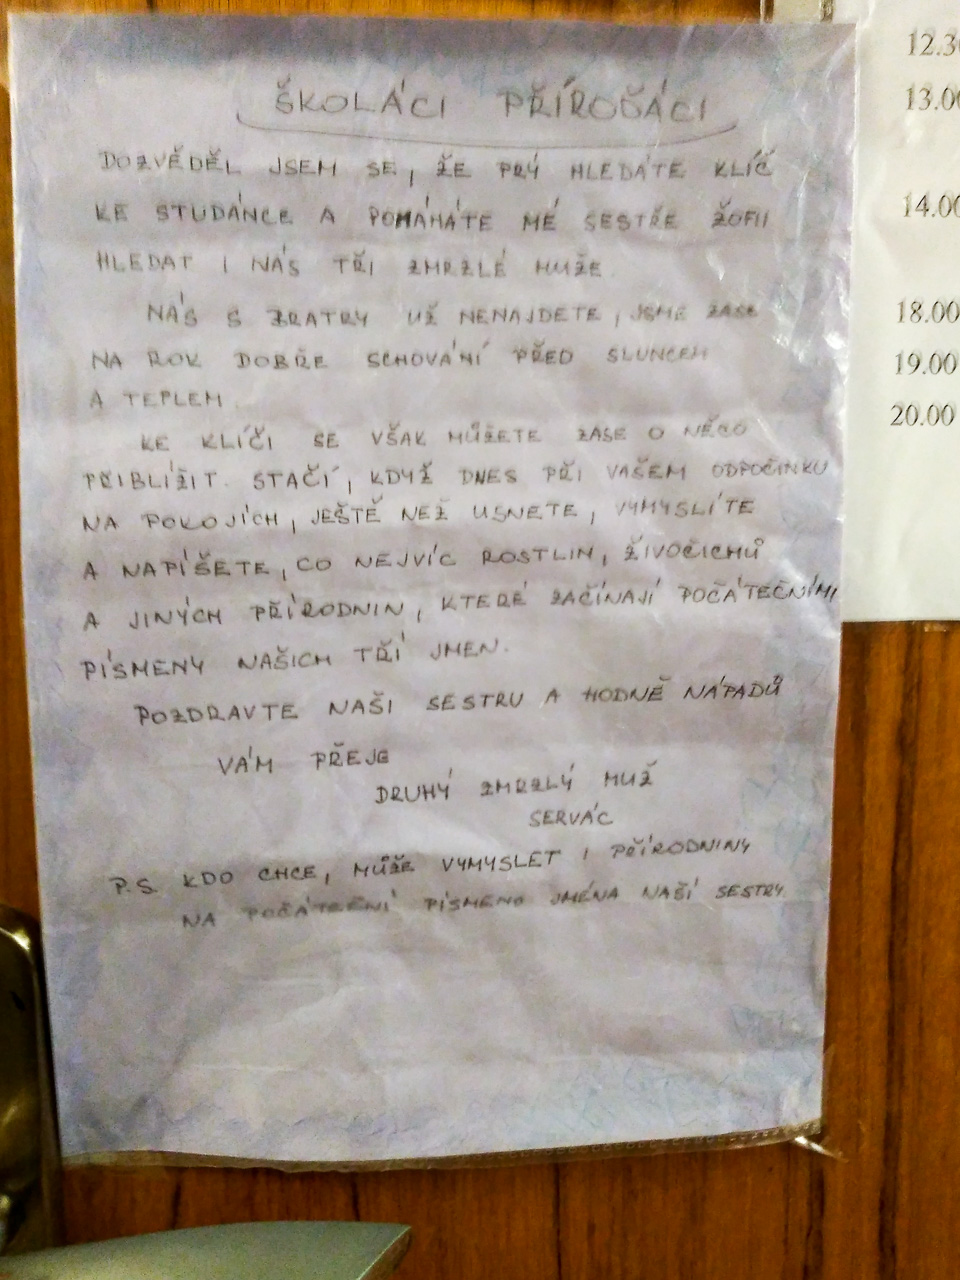 ŠKOLÁCI PŘÍROĎÁCI
DOZVĚDĚL JSEM SE, ŽE PRÝ HLEDÁTE KLÍČ
KE STUDÁNCE A POMÁHÁTE MÉ SESTŘE ŽOFII
HLEDAT I NÁS TŘI ZMRZLÉ MUŽE.
NÁS S BRATRY UŽ NENAJDETE, JSME ZASE
NA ROK DOBŘE SCHOVÁNÍ PŘED SLUNCEM
A TEPLEM.
KE KLÍČI SE VŠAK MŮŽETE ZASE O NĚCO
PŘIBLÍŽIT. STAČÍ, KDYŽ DNES PŘI VAŠEM ODPOČINKU
NA POKOJÍCH, JEŠTĚ NEŽ USNETE, VYMYSLÍTE
A NAPÍŠETE, CO NEJVÍC ROSTLIN, ŽIVOČICHŮ
A JINÝCH PŘÍRODNIN, KTERÉ ZAČÍNAJÍ POČÁTEČNÍMI
PÍSMENY NAŠICH TŘÍ JMEN.
POZDRAVTE NAŠI SESTRU A HODNĚ NÁPADŮ
VÁM PŘEJE
DRUHÝ ZMRZLÝ MUŽ
SERVÁC
P.S. KDO CHCE, MŮŽE VYMYSLET I PŘÍRODNINY
NA POČÁTEČNÍ PÍSMENO JMÉNA NAŠÍ SESTRY.
13.00
14.00
18.00
19.00
20.00